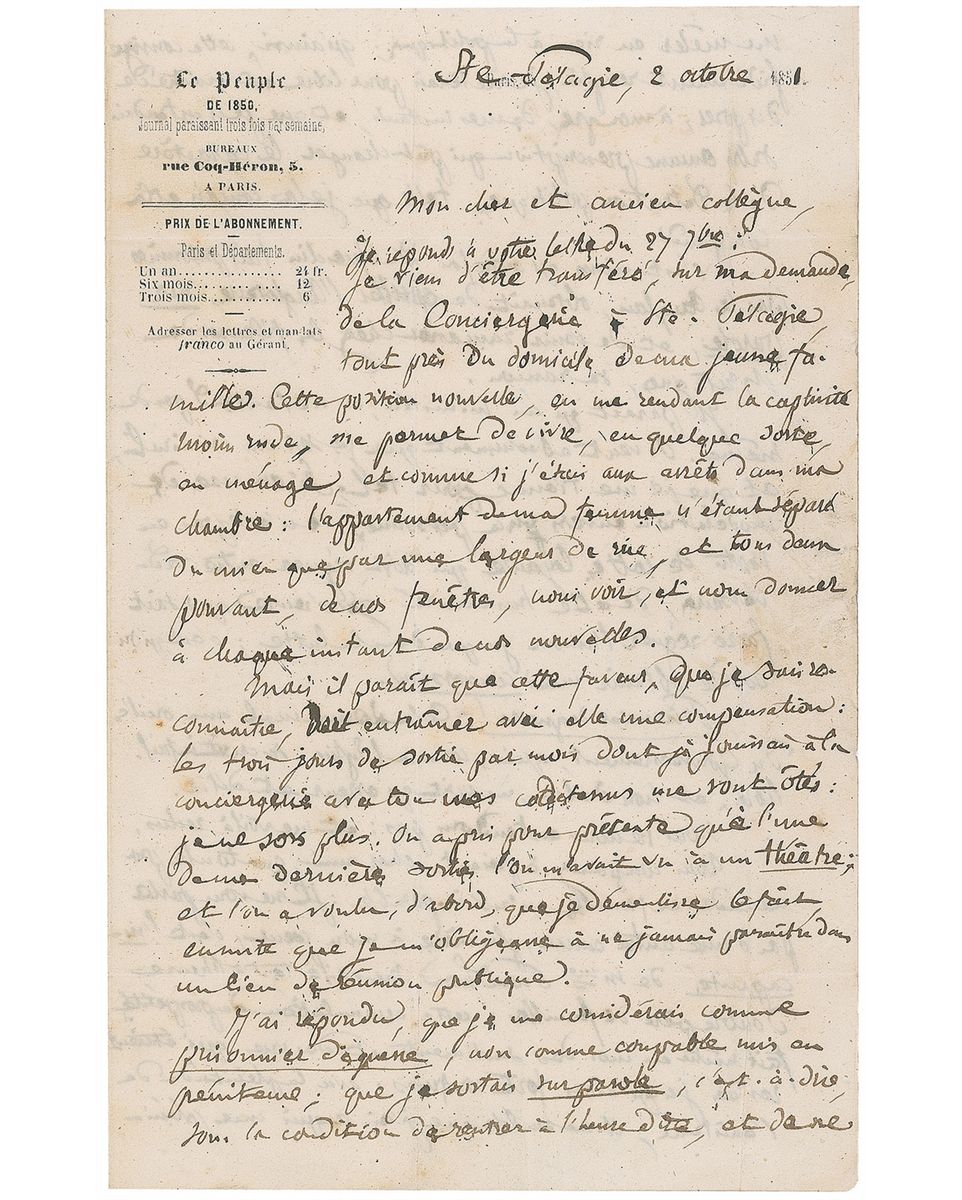 Le Peuple
DE 1850,
Journal paraissant trois fois par semaine,
BUREAUX
rue Coq-Héron, 5.
A PARIS.
PRIX DE L'ABONNEMENT.
Paris et Départements.
Un an............... 24 fr.
Six mois............ 12
Trois mois.......... 6
Adresser les lettres et mandats
franco au Gérant.
Ste-Pélagie, 2 octobre 1851.
Mon cher et ancien collègue,
Je réponds à votre lettre du 27 7bre.
Je viens d'être transféré, sur ma demande,
de la Conciergerie à Ste-Pélagie,
tout près du domicile de ma jeune fa-
mille. Cette position nouvelle, en me rendant la captivité
moins rude, me permet de vivre, en quelque sorte,
en ménage, et comme si j'étais aux arrêts dans ma
chambre : l'appartement de ma femme n'étant séparé
du mien que par une largeur de rue, et tous deux
pouvant, de nos fenêtres, nous voir, et nous donner
à chaque instant de nos nouvelles.
Mais il paraît que cette faveur, que je sais re-
connaître, doit entraîner avec elle une compensation :
les trois jours de sortie par mois dont je jouissais à la
conciergerie avec tous mes codétenus me sont ôtés :
je ne sors plus. On a pris pour prétexte qu'à l'une
de mes dernières sorties l'on m'avait vu à un théâtre ;
et l'on a voulu, d'abord, que je démentisse le fait,
ensuite que je m'obligeasse à ne jamais paraître dans
un lieu de réunion publique.
J'ai répondu, que je me considérais comme
prisonnier de guerre, non comme coupable mis en
pénitence ; que je sortais sur parole, c'est-à-dire,
sous la condition de rentrer à l'heure dite, et de ne